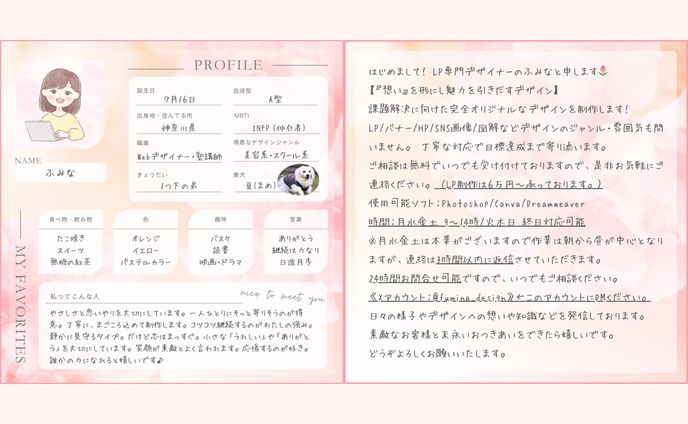 PROFILE
誕生日
7月16日
血液型
A型
出身地・住んでる所
神奈川県
MBTI
INFP(仲介者)
職業
Webデザイナー・塾講師
得意なデザインジャンル
美容系・スクール系
きょうだい
1つ下の弟
愛犬
豆(まめ)
NAME
ふみな
MY FAVORITES
食べ物・飲み物
たこ焼き
スイーツ
無糖の紅茶
色
オレンジ
イエロー
パステルカラー
趣味
バスケ
読書
映画・ドラマ
言葉
ありがとう
継続は力なり
日進月歩
私ってこんな人
nice to meet you
やさしさと思いやりを大切にしています。一人ひとりにそっと寄りそうのが得
意。丁寧に、まごころ込めて制作します。コツコツ継続するのがわたしの強み。
静かに見守るタイプ。だけど応はまっすぐ。小さな「うれしい」や「ありがと
う」を大切にしています。笑顔が素敵とよく言われます。応援するのが好き。
誰かの力になれると嬉しいです♪
はじめまして! LP専門デザイナーのふみなと申します🌷
【『想い』を形にし魅力を引きだすデザイン】
課題解決に向けた完全オリジナルなデザインを制作します!
LP/バナー/HP/SNS画像/図解などデザインのジャンル・雰囲気も問
いません。 丁寧な対応で目標達成まで寄り添います。
ご相談は無料でいつでも受け付けておりますので、是非お気軽にご
連絡ください。(LP制作は6万円〜承っております。)
使用可能ソフト:Photoshop/Canva/Dreamweaver
時間:月水金土 9〜14時/火木日 終日対応可能
※月水金土は本業がございますので作業は朝から昼が中心となり
ますが、連絡は3時間以内に返信させていただきます。
24時間お問合せ可能ですので、いつでもご相談ください。
《Xアカウント:@fumina_design》←このアカウントにDMください。
日々の様子やデザインへの想いや知識などを発信しております。
素敵なお客様と末永いおつきあいをできたら嬉しいです。
どうぞよろしくお願いいたします。